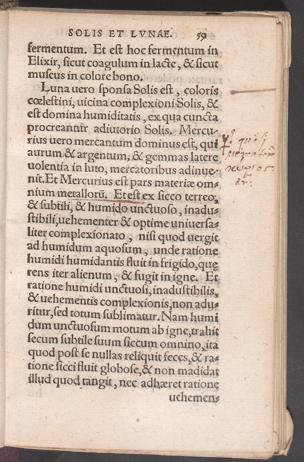 SOLIS ET LVNAE. 59
fermentum. Et est hoc fermentum in
Elixir, sicut coagulum in lacte, & sicut
muscus in colore bono.
Luna uero sponsa Solis est, coloris
cœlestini, uicina complexioni Solis, &
est domina humiditatis, ex qua cuncta
procreantur adiutorio Solis. Mercu-
rius uero mercantum dominus est, qui
aurum & argentum, & gemmas latere
uolentia in luto, mercatoribus adinue-
nit. Et Mercurius est pars materiæ om-
nium metallorũ. Et est ex sicco terreo,
& subtili, & humido unctuoso, inadu-
stibili, uehementer & optime uniuersa-
liter complexionato, nisi quod uergit
ad humidum aquosum, unde ratione
humidi humidantis fluit in frigido, quæ
rens iter alienum, & fugit in igne. Et
ratione humidi unctuosi, inadustibilis,
& uehementis complexionis, non adu-
ritur, sed totum sublimatur. Nam humi
dum unctuosum motum ab igne, trahit
secum subtile suum siccum omnino, ita
quod post se nullas reliquit feces, & ra-
tione sicci fluit globose, & non madidat
illud quod tangit, nec adhæret ratione
uehemen-